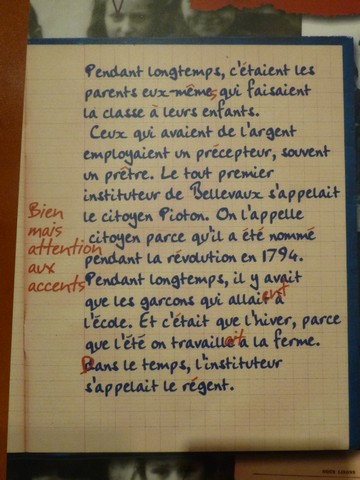 Pendant longtemps, c'étaient les
parents eux-même,s qui faisaient
la classe à leurs enfants.
Ceux qui avaient de l'argent
employaient un précepteur, souvent
un prêtre. Le tout premier
instituteur de Bellevaux s'appelait
le citoyen Pioton. On l'appelle
citoyen parce qu'il a été nommé
pendant la révolution en 1794.
Pendant longtemps, il y avait
que les garcons qui allaient à
l'école. Et c'était que l'hiver, parce
que l'été on travaillait à la ferme.
Dans le temps, l'instituteur
s'appelait le régent.
Bien
mais
attention
aux
accents